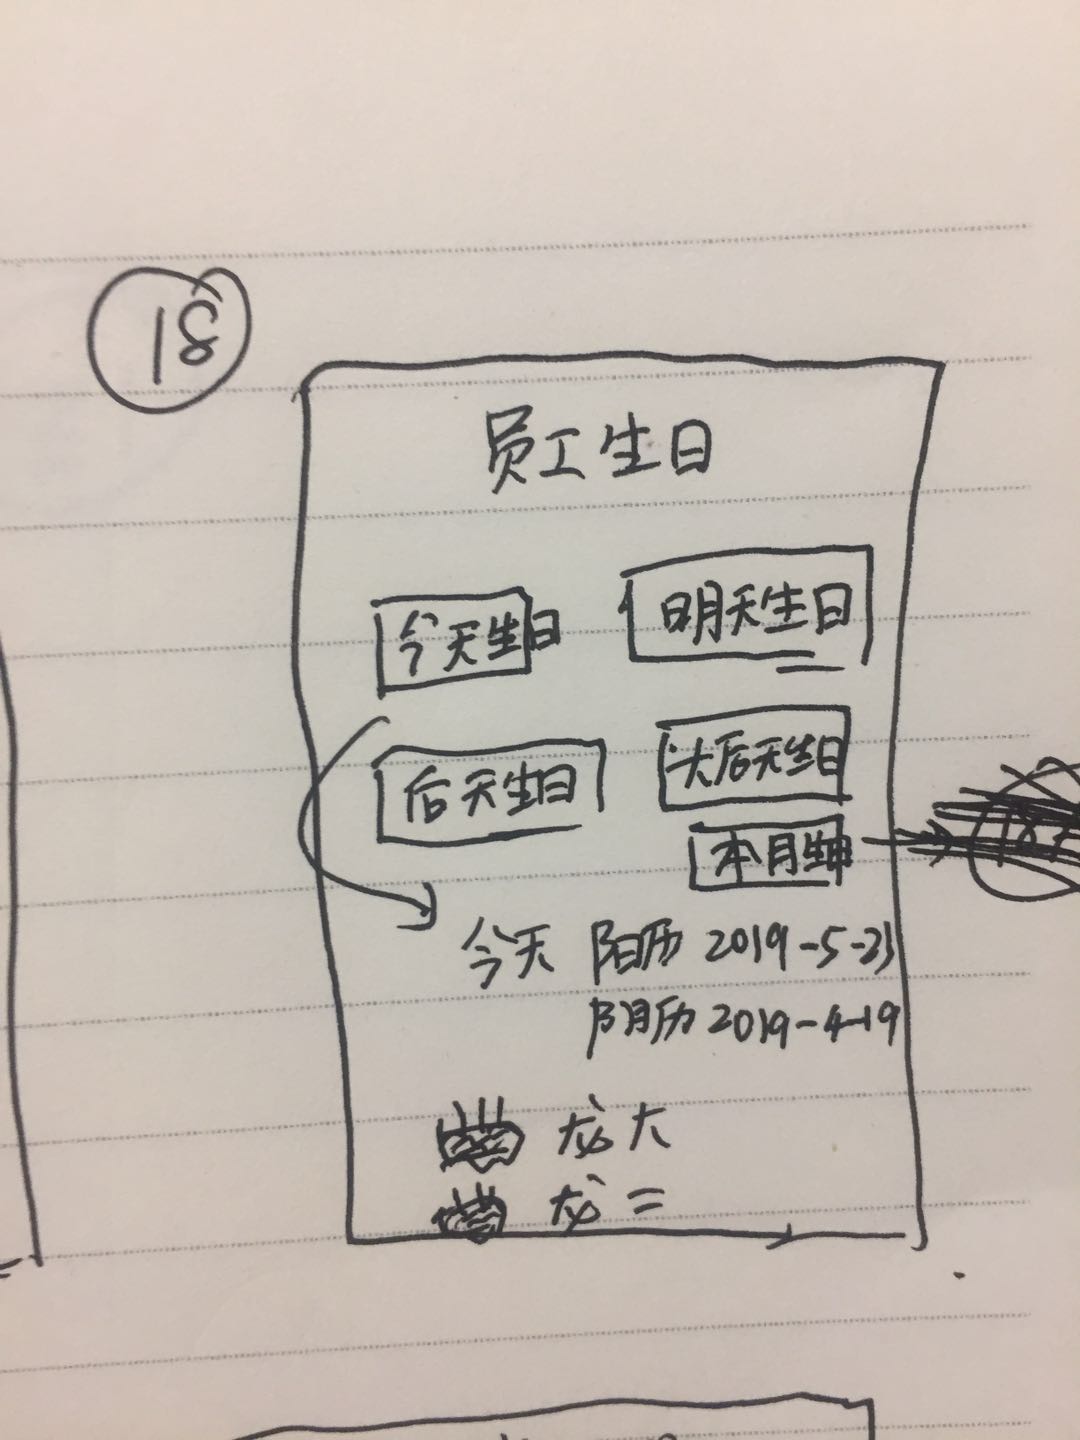 18
员工生日
今天生日 明天生日
后天生日 大后天生日
本月生日
今天 阳历 2019-5-23
阴历 2019-4-19
龙大
龙二